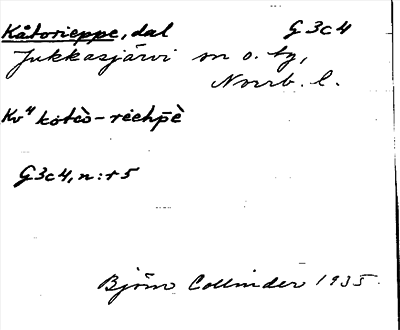 Kåtorieppe, dal G3c4
Jukkasjärvi sn o. tg,
Norrb. l.
Kv" kotèò-rèehpè
G3c4, n:r 5
Björn Collinder 1935.